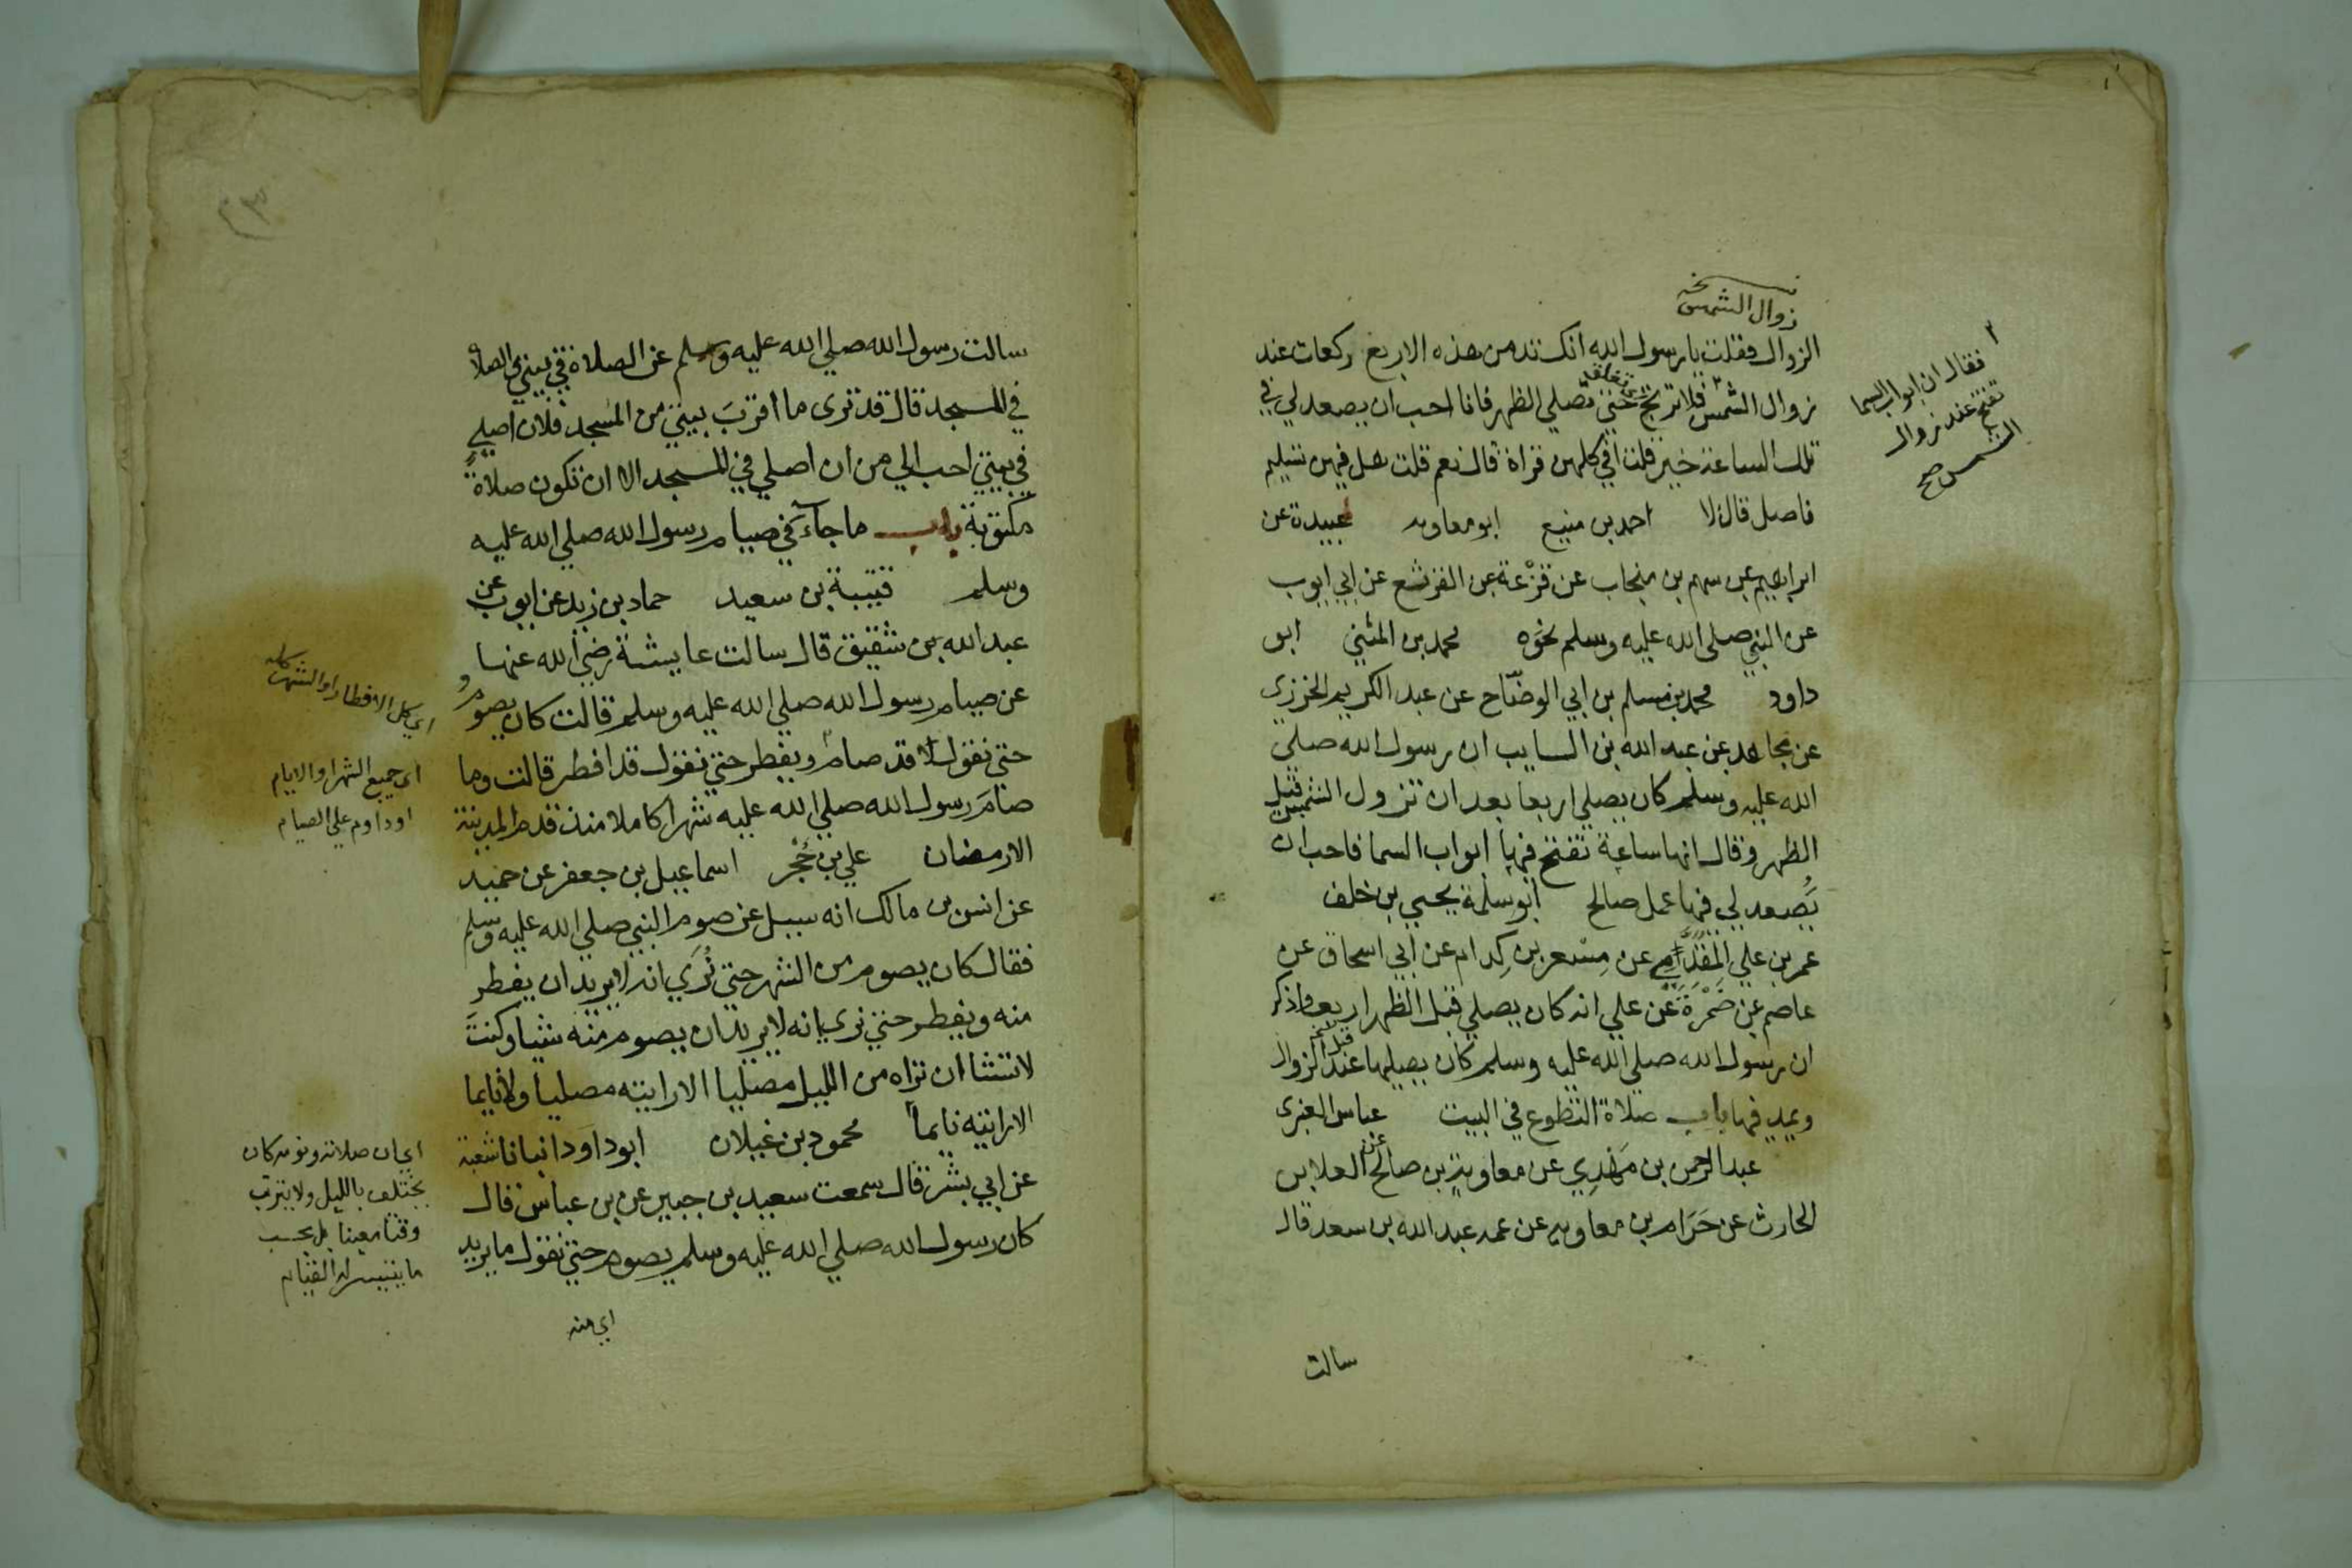 نسخه
زوال الشمس
الزوال فقلت يا رسول الله انك تدمن هذه الاربع ركعات عند
زوال الشمس فلا ترتج حتي تصلي الظهر فانا احب ان يصعد لي في
تلك الساعة خير قلت افي كلهن قراة قال نعم قلت هل فيهن تسليم
فاصل قال لا احمد بن منيع ابو معاويه عبيدة عن
ابراهيم عن سهم بن منجاب عن قزعة عن القرثع عن ابي ايوب
عن النبي صلي الله عليه وسلم نحوه محمد بن المثني ابو
داود محمد بن مسلم بن ابي الوضاح عن عبد الكريم الجزري
عن مجاهد عن عبد الله بن السايب ان رسول الله صلي
الله عليه وسلم كان يصلي اربعا بعد ان تزول الشمس قبل
الظهر وقال انها ساعة تفتح فيها ابواب السما فاحب ان
يصعد لي فيها عمل صالح ابو سلمة يحيي بن خلف
عمر بن علي المقدمي عن مسعر بن كدام عن ابي اسحاق عن
عاصم عن ضمرة عن علي انه كان يصلي قبل الظهر اربعا وذكر
ان رسول الله صلي الله عليه وسلم كان يصليها عند الزوال
ويمد فيها باب صلاة التطوع في البيت عباس العنبري
عبد الرحمن بن مهدي عن معاوية بن صالح عن العلا بن
الحارث عن حرام بن معاويه عن عمه عبد الله بن سعد قال
سالت
فقال ان ابواب السما
تفتح عند زوال
الشمس صح
سالت رسول الله صلي الله عليه وسلم عن الصلاة في بيتي والصلاة
في المسجد قال قد تري ما اقرب بيتي من المسجد فلان اصلي
في بيتي احب الي من ان اصلي في المسجد الا ان تكون صلاة
مكتوبة باب ما جآء في صيام رسول الله صلي الله عليه
وسلم قتيبة بن سعيد حماد بن زيد عن ايوب عن
عبد الله بن شقيق قال سالت عايشة رضي الله عنها
عن صيام رسول الله صلي الله عليه وسلم قالت كان يصوم
حتي نقول قد صام ويفطر حتي نقول قد افطر قالت وما
صام رسول الله صلي الله عليه شهرا كاملا منذ قدم المدينة
الا رمضان علي بن حجر اسماعيل بن جعفر عن حميد
عن انس بن مالك انه سيل عن صوم النبي صلي الله عليه وسلم
فقال كان يصوم من الشهر حتي نري انه لا يريد ان يفطر
منه ويفطر حتي نري انه لا يريد ان يصوم منه شيا وكنت
لا تشا ان تراه من الليل مصليا الا رايته مصليا ولا نايما
الا رايته نايما محمود بن غيلان ابو داود انبانا شعبة
عن ابي بشر قال سمعت سعيد بن جبير عن بن عباس قال
كان رسول الله صلي الله عليه وسلم يصوم حتي نقول ما يريد
اي منه
اي كل الافطار او الشهر كله
اي جميع الشهر او الايام
او داوم علي الصيام
اي ان صلاته ونومه كان
يختلف بالليل ولا يترتب
وقتا معينا بل بحسب
ما يتيسر له القيام